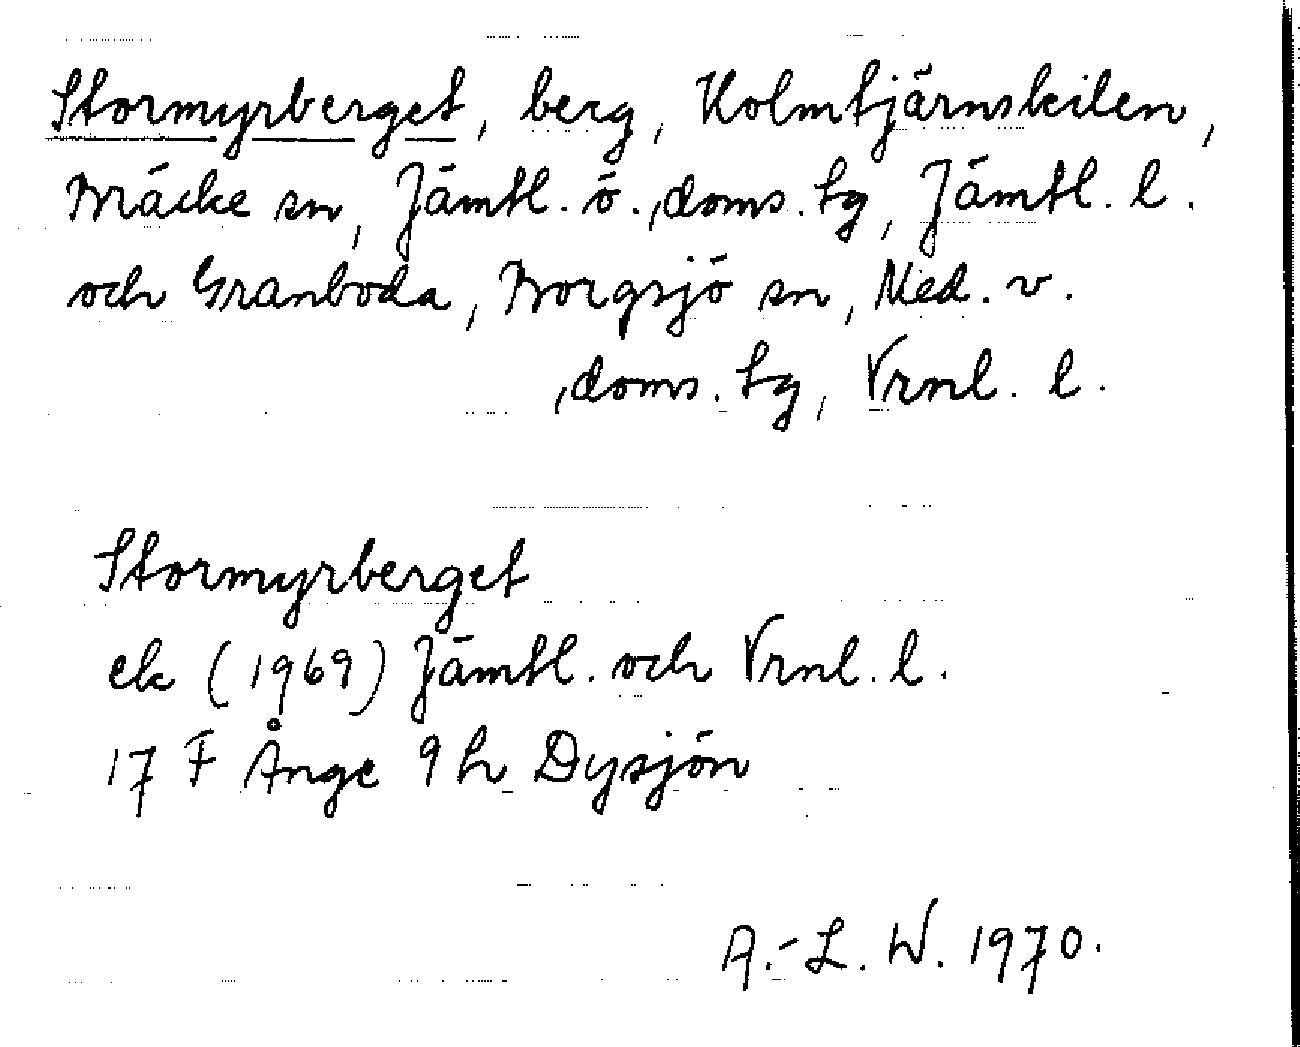 Stormyrberget, berg, Holmtjärnskilen,
Bräcke sn, Jämtl. ö. doms. tg, Jämtl. l.
och Granboda, Borgsjö sn, Med. v.
doms. tg, Vrnl. l.
Stormyrberget
ek (1969) Jämtl. och Vrnl. l.
17 F Ånge 9 h Dysjön
A.-L. W. 1970.